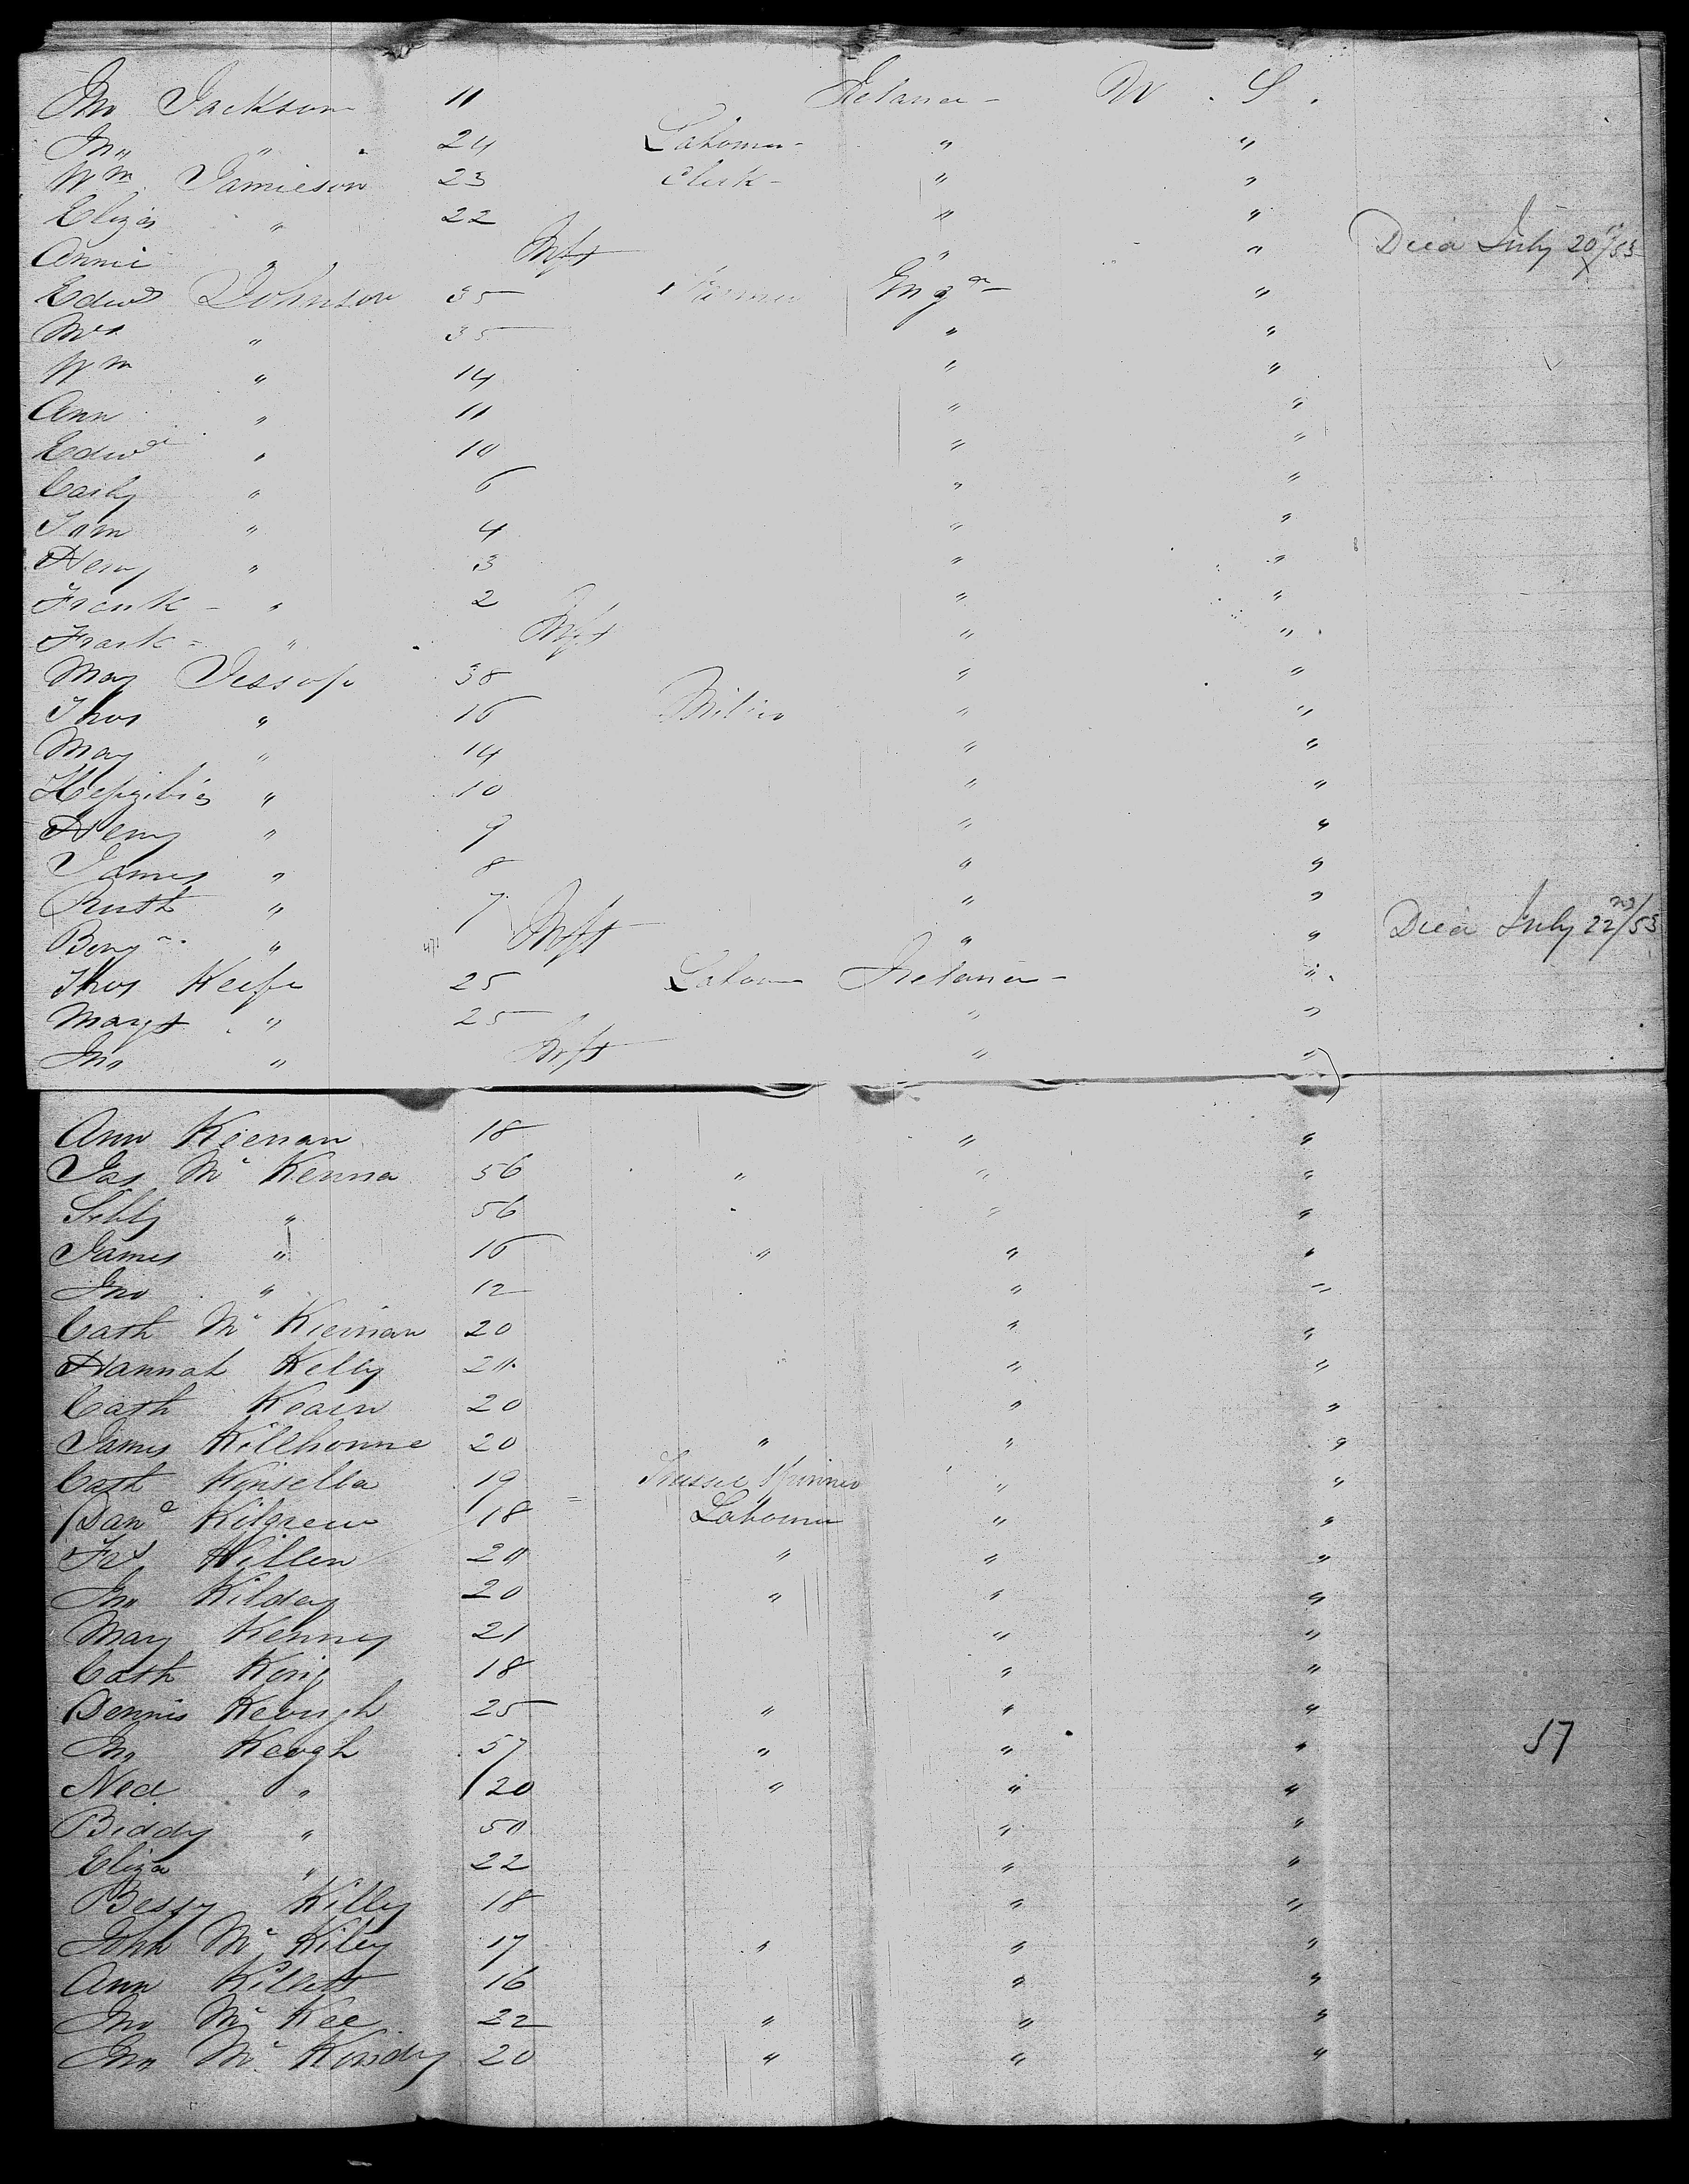 Jno Jackson 11 Ireland W. S.
Jno " 24 Labourer " "
Wm Jamieson 23 Clerk " "
Eliza " 22 " "
Annie " Inft " " Died July 20th/53
Edwd Johnson 35 Farmer Engd "
Mrs " 35 " "
Wm " 14 " "
Ann " 11 " "
Edwd " 10 " "
" 6 " "
Tom " 4 " "
Henry " 3 " "
Frank " 2 " "
Frank " Inft " "
Mary Jessop 38 " "
Thos " 16 " "
Mary " 14 " "
" 10 " "
Henry " 9 " "
James " 8 " "
Ruth " 7 " "
Benj " Inft " " Died July 22nd/53
Thos Keefe 25 Labour Ireland "
Margt " 25 " "
Jno " Inft " "
Ann Keenan 18 " "
Jas Mc Kenna 56 " " "
" 56 " "
James " 16 " " "
Jno " 12 " "
Cath Mc Kiernan 20 " "
Hannah Kelly 20 " "
Cath Kearn 20 " "
James 20 " " "
Cath Kinsella 19 Spinner " "
Danl Kilgrew 18 Labourer " "
Killen 20 " " "
Jno Kilday 20 " " "
Mary Kenny 21 " "
Cath King 18 " "
Dennis Keough 25 " " "
Jno Keogh 57 " " "
Ned " 20 " " "
Biddy " 50 " "
Eliza " 22 " "
Bessy Killy 18 " "
John Mc Kiley 17 " " "
Ann 16 " "
Jno Mc Kee 22 " " "
Jno Mc 20 " " "
57